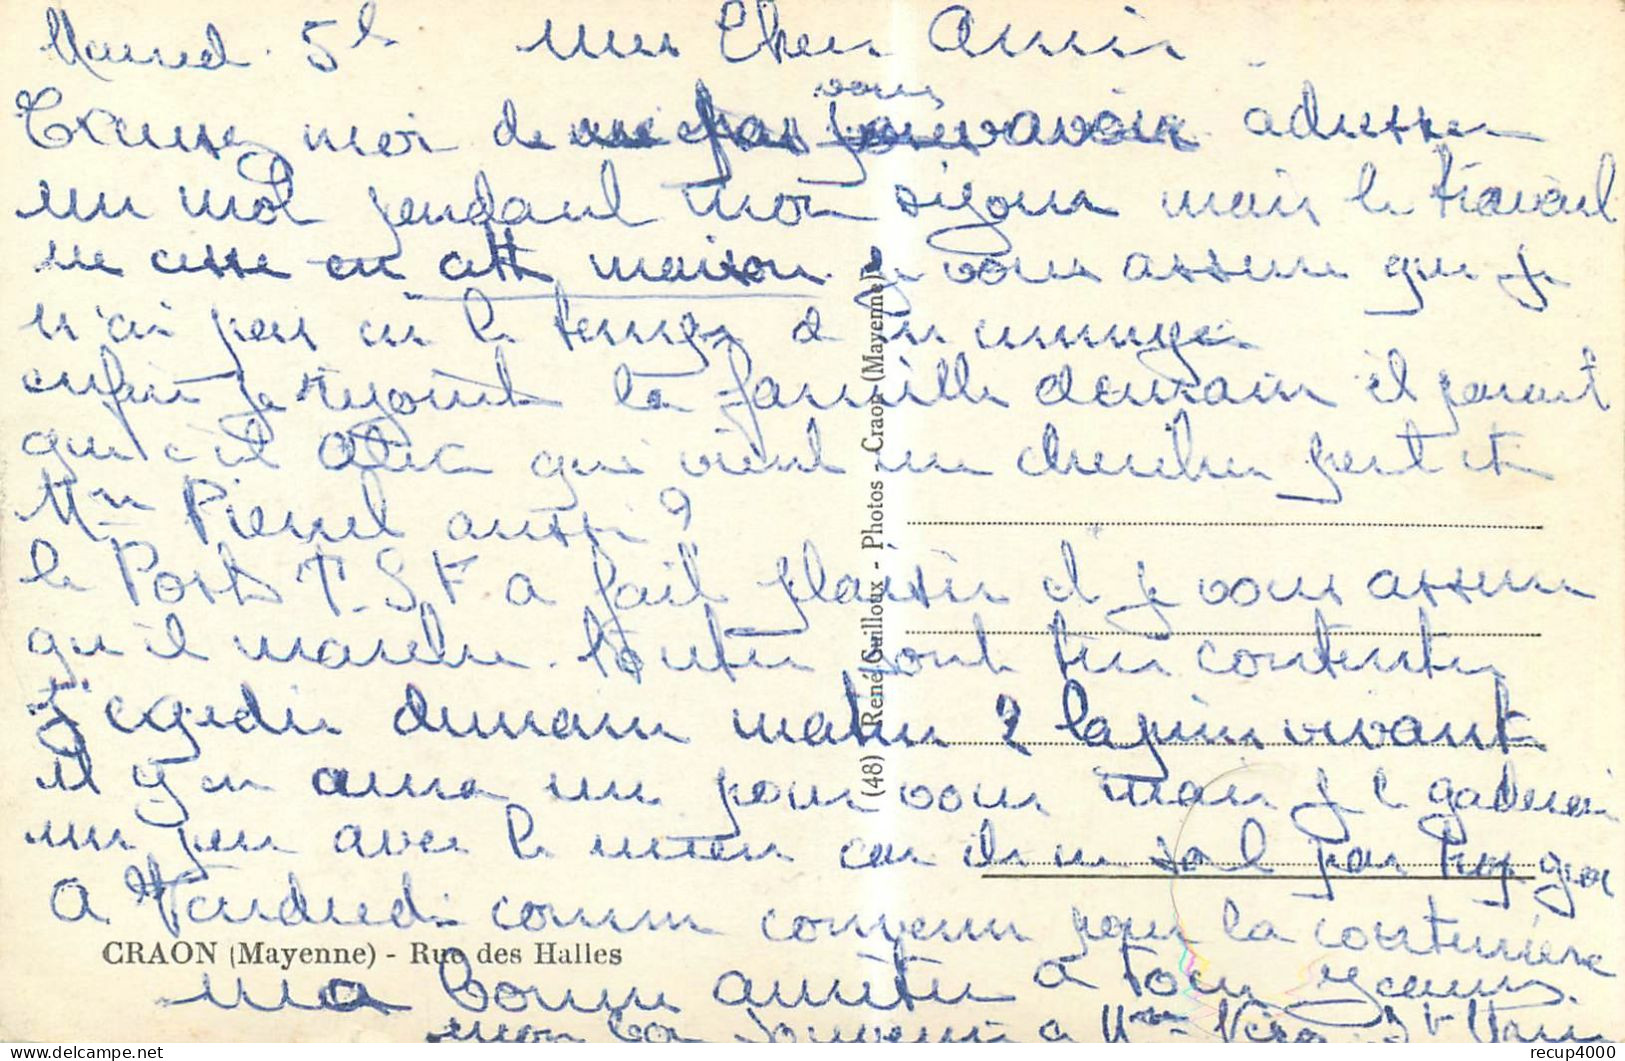 5h mes Chers Amis
Excusez moi de ne pas vous avoir adresser
un mot pendant mon séjour mais le travail
ne cesse en cette maison. Je vous assure que je
n'ai peu eu le temps de m'ennuyer
enfin je rejoint la famille demain il parait
que c'est qui vient me chercher peut etre
Mme aussi ?
le Poste T.S.F a fait plaisir et je vous assure
qu'il marche. toutes sont très contentes
J'expédie demain matin 2 lapins vivants
il y en aura un pour vous mais je le garderai
un peu avec le mien car ils ne sont pas trop gros
A Vendredi comme convenu pour la couturière
CRAON (Mayenne) - Rue des Halles
ma bonne amitié à tous
mon bon souvenir a Mme
(48) René Guilloux - Photos - Craon (Mayenne)
recup4000